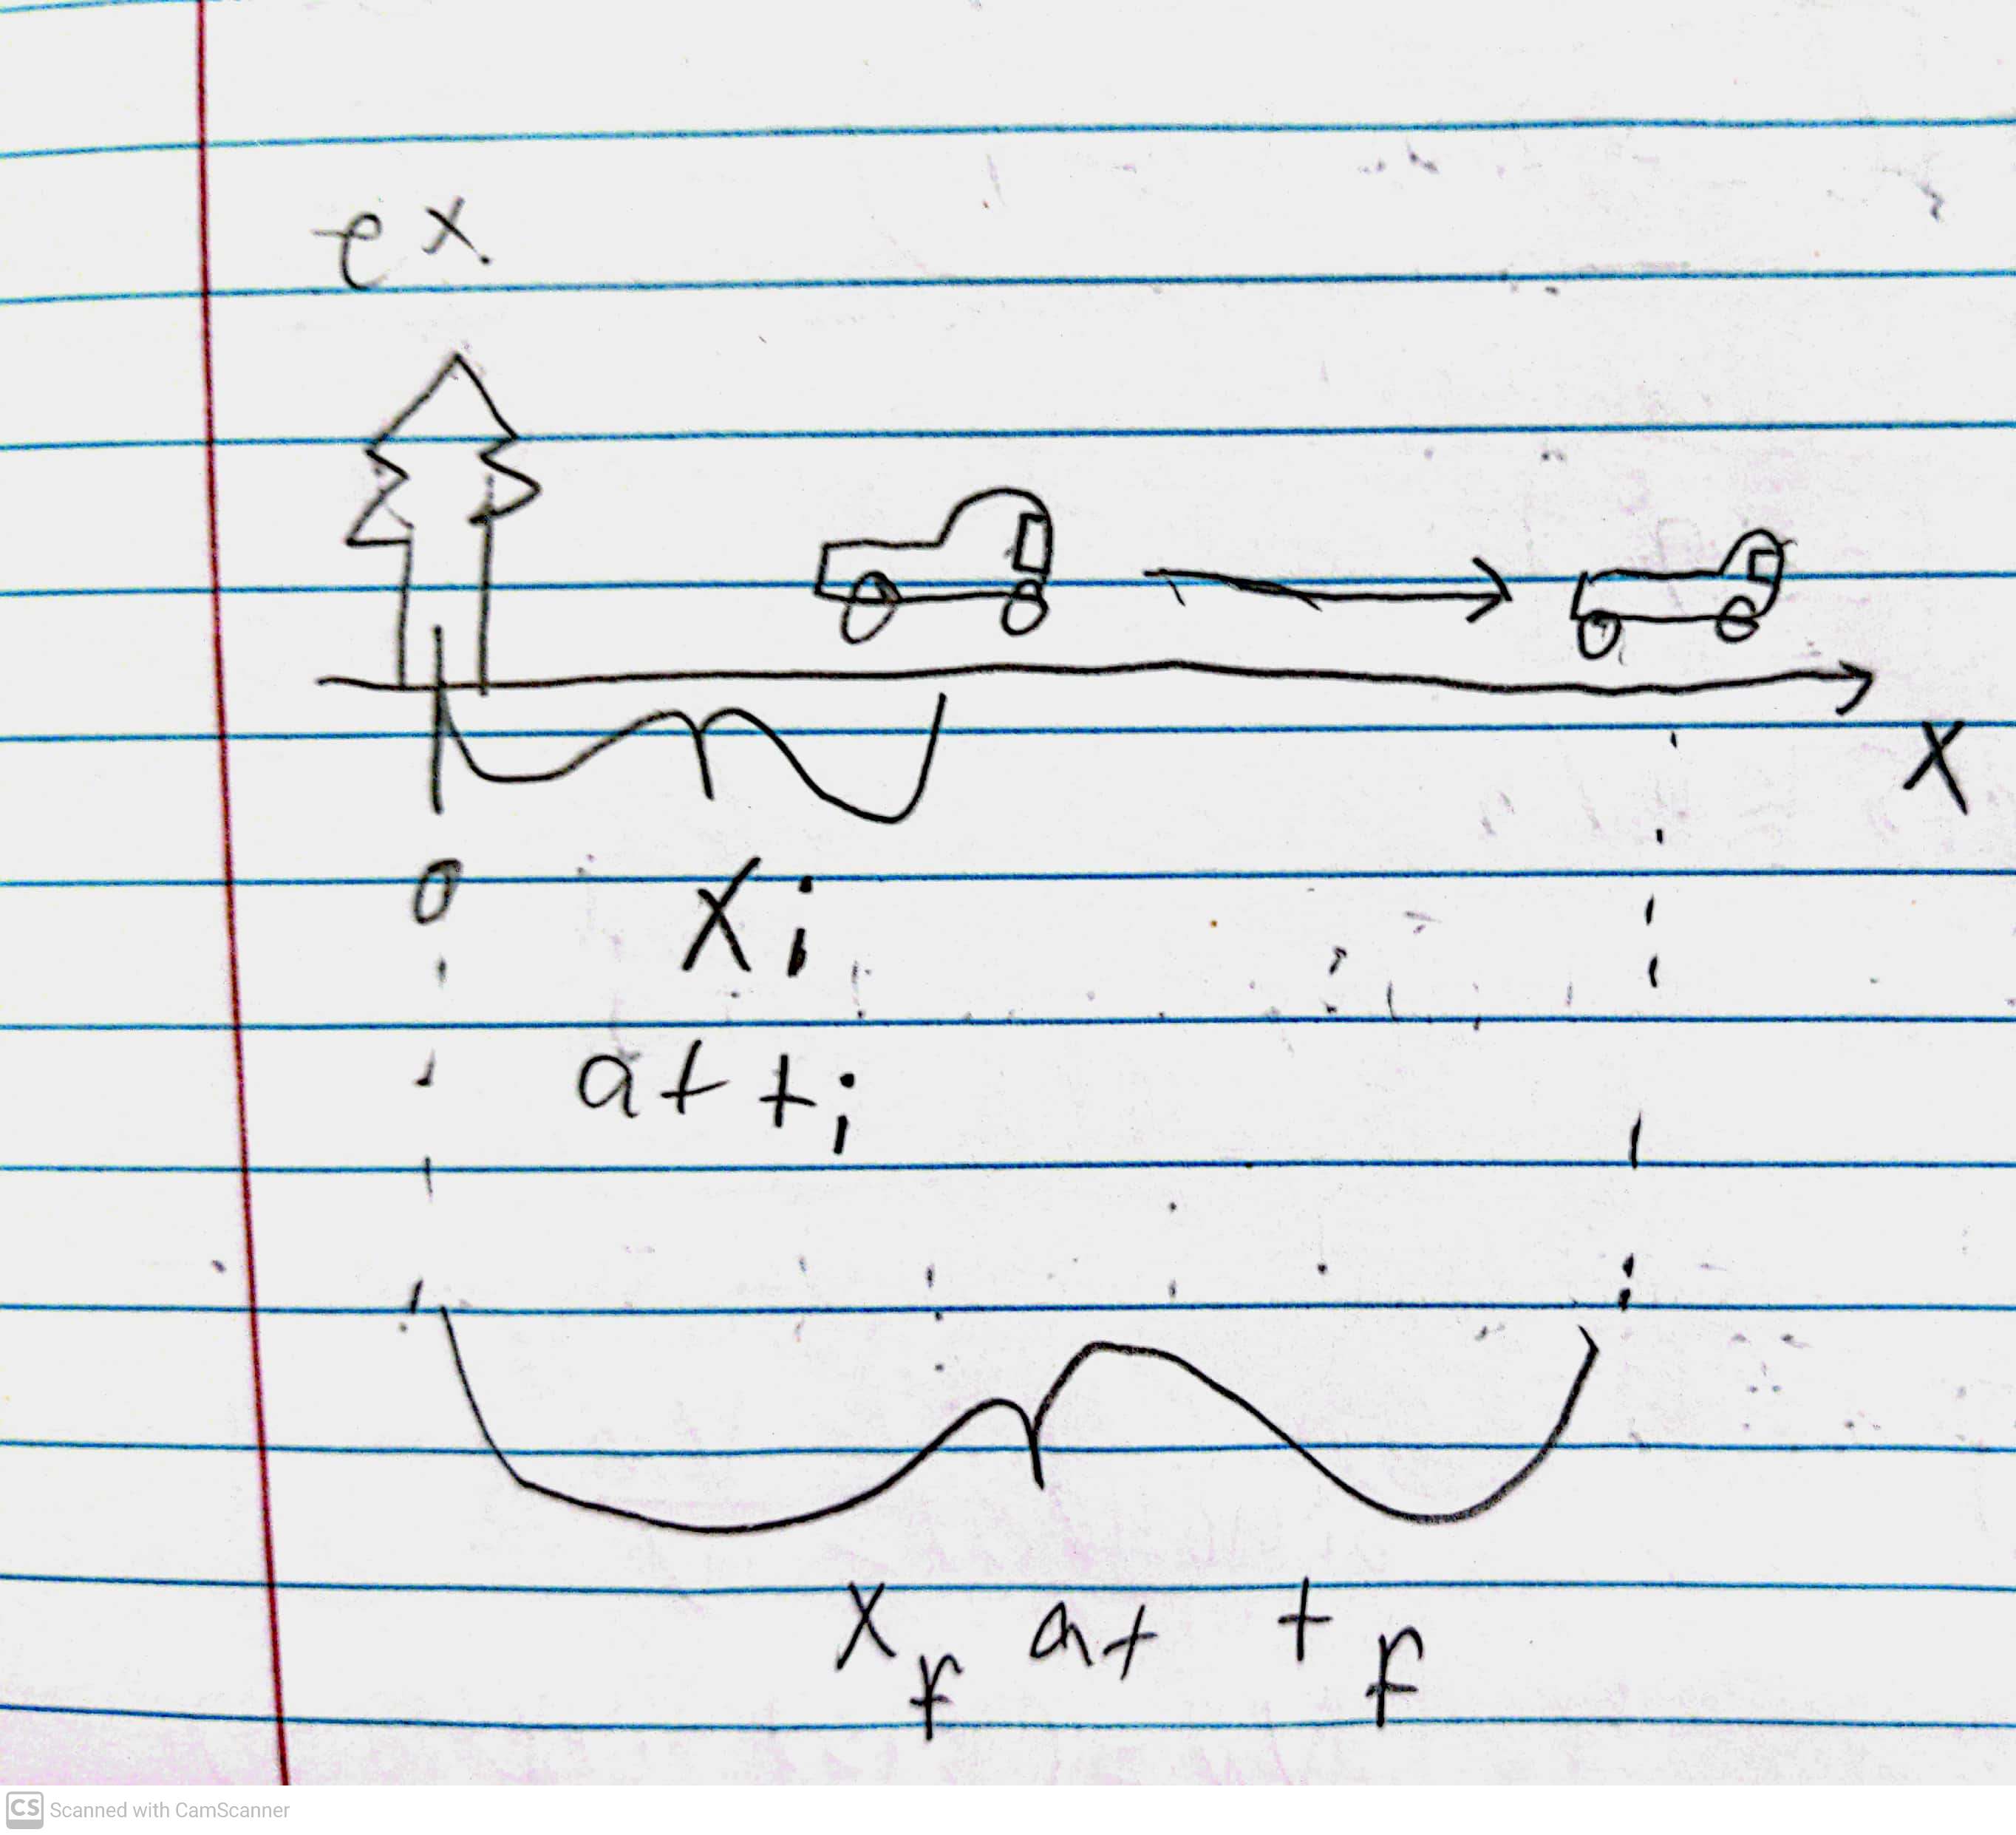 ex.
x
0
xi
at ti
xf at tf
CS Scanned with CamScanner